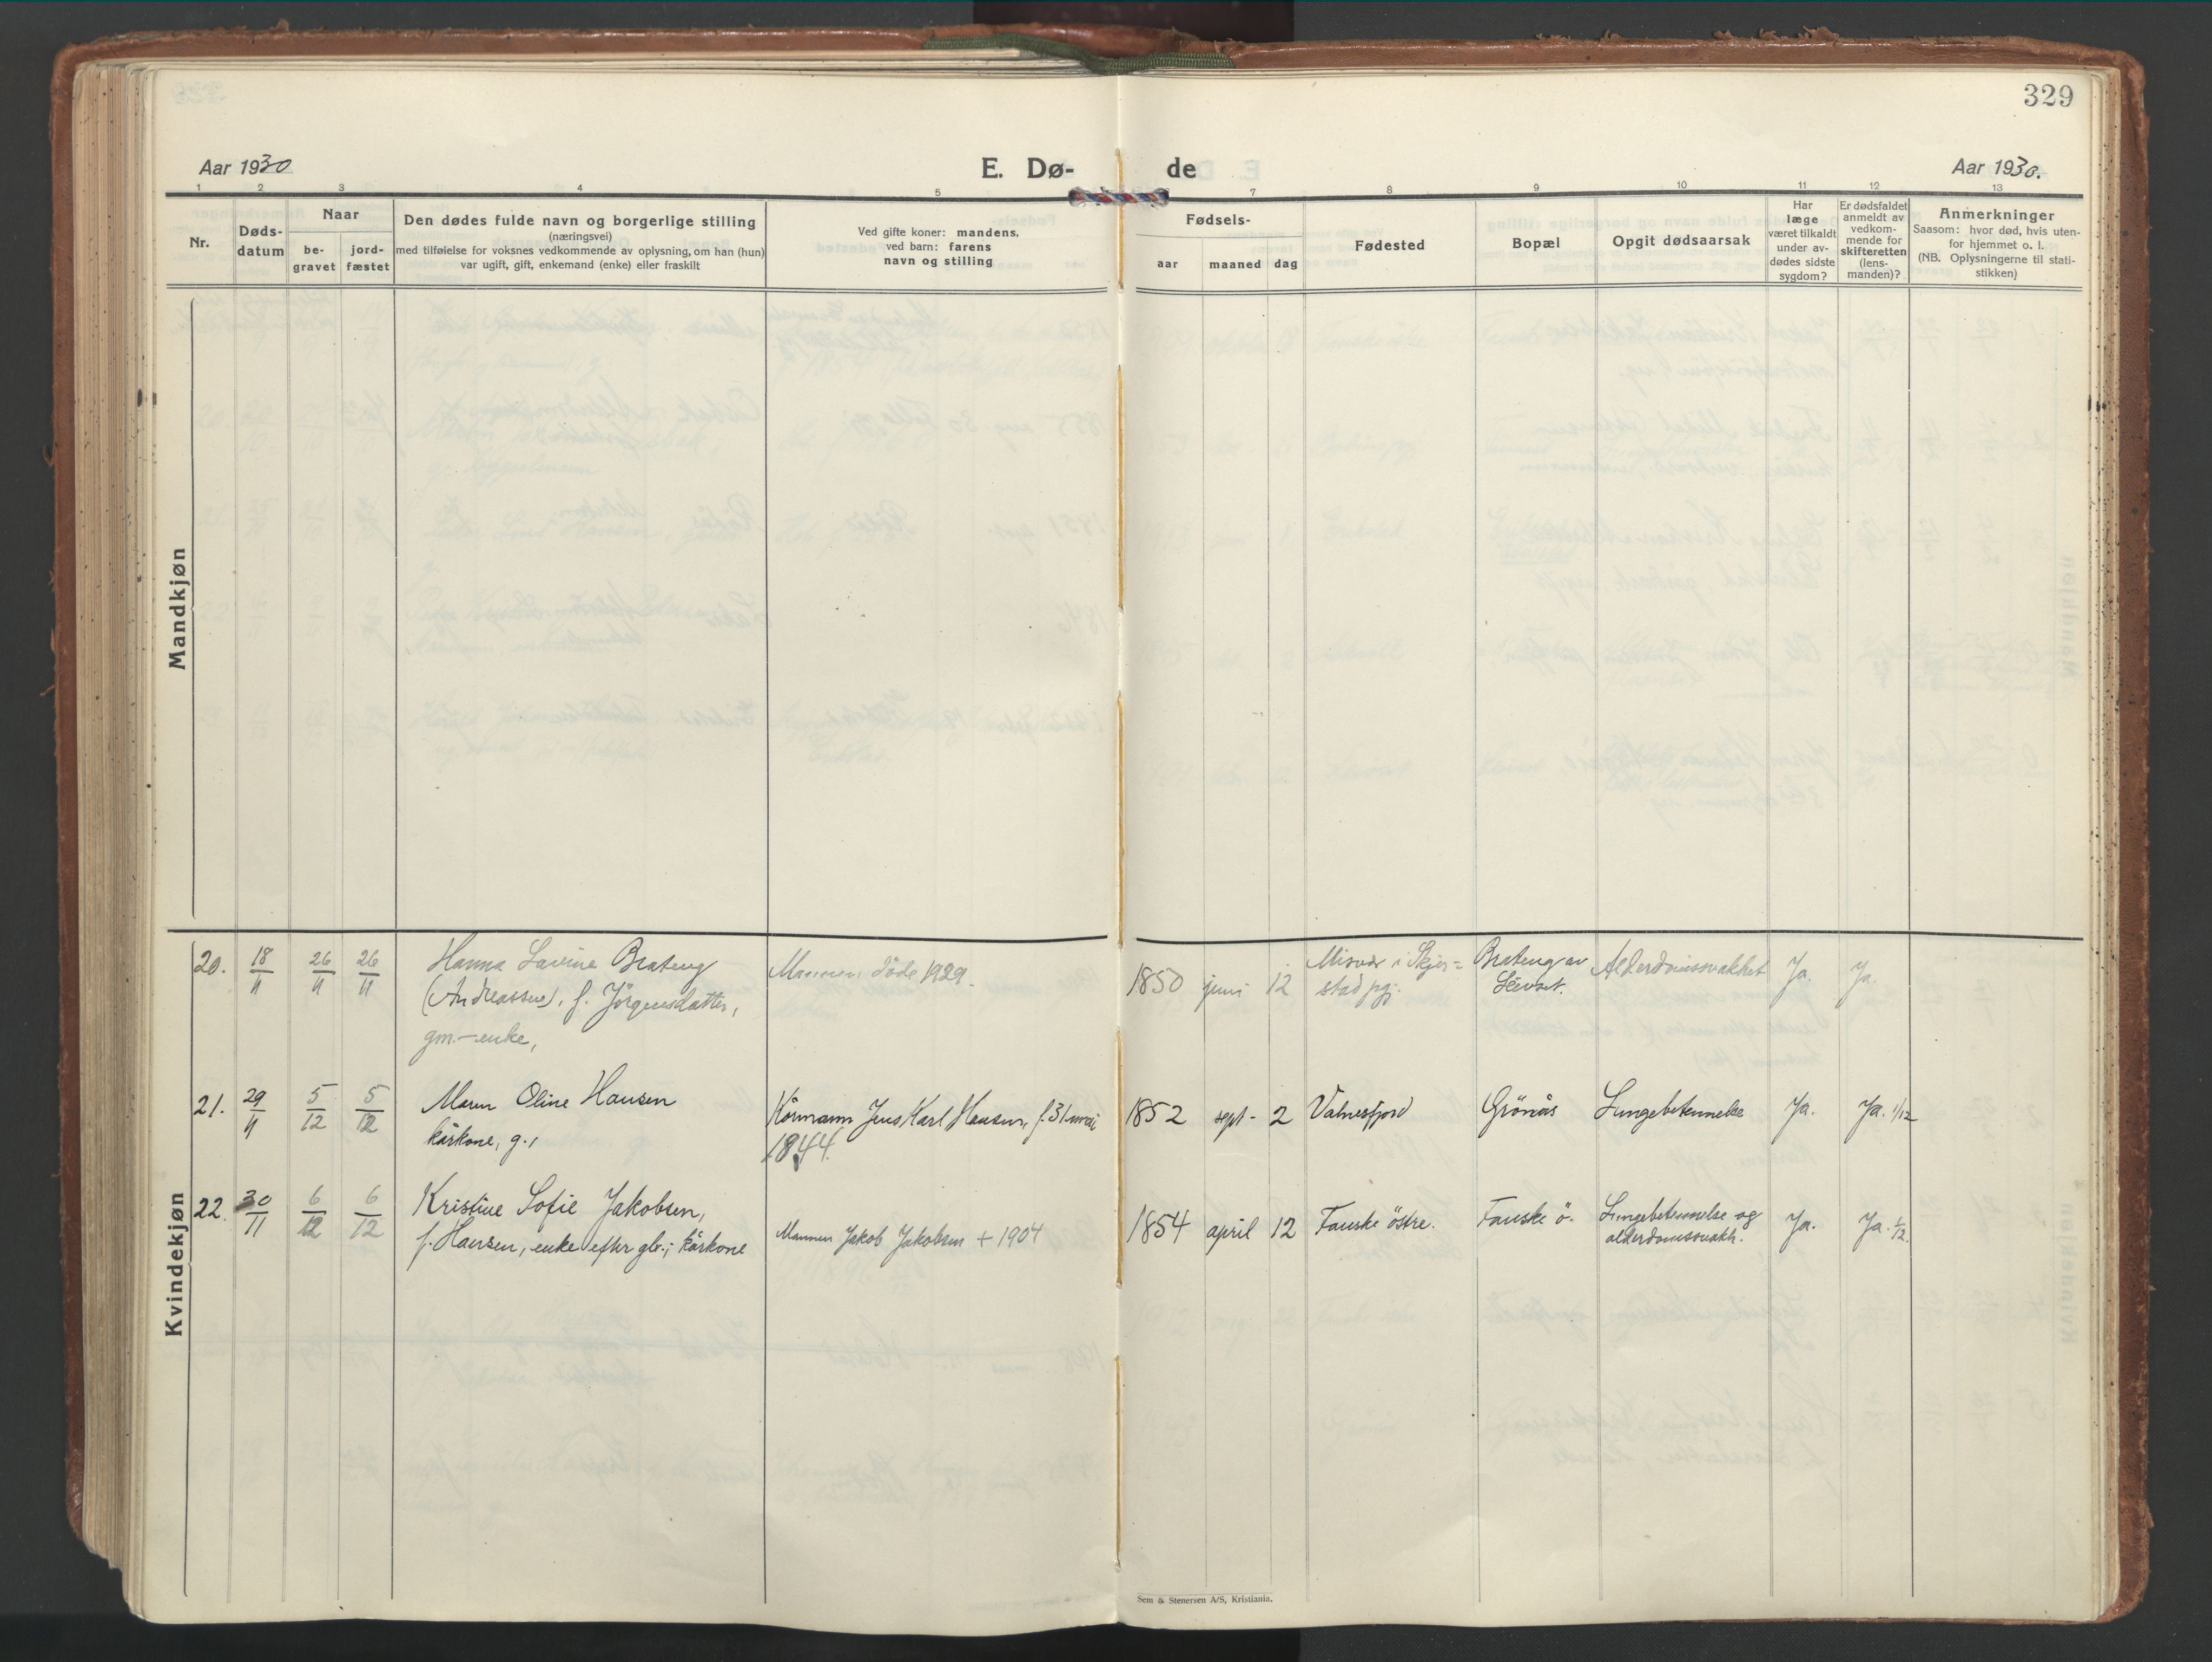 329
Aar 1930
E. Dø-
de
Aar 1930.
1 2 3 4 5 7 8 9 10 11 12 13
Nr.
Døds-
datum
Naar
be-
gravet
jord-
fæstet
Den dødes fulde navn og borgerlige stilling
(næringsvei)
med tilføielse for voksnes vedkommende av oplysning, om han (hun)
var ugift, gift, enkemand (enke) eller fraskilt
Ved gifte koner: mandens,
ved barn: farens
navn og stilling
Fødsels-
aar
maaned
dag
Fødested
Bopæl
Opgit dødsaarsak
Har
læge
været tilkaldt
under av-
dødes sidste
sygdom?
Er dødsfaldet
anmeldt av
vedkom-
mende for
skifteretten
(lens-
manden)?
Anmerkninger
Saasom: hvor død, hvis uten-
for hjemmet o. l.
(NB. Oplysningerne til stati-
stikken)
Mandkjøn
Kvindekjøn
20. 18/11 26/11 26/11
Hanna Lavine Brateng
(Andreassen), f. Jörgensdatter,
gm.-enke,
Mannen döde 1929.
1850 juni 12
Misvær i Skjer=
stad pgj.
Brateng av
Leivset.
Alderdomssvakhet
Ja. Ja.
21. 29/11 5/12 5/12
Maren Oline Hansen
kårkone, g.,
Kårmann Jens Karl Hansen, f. 31 mai
1844.
1852 sept- 2 Valnesfjord Grönås Lungebetennelse Ja. Ja. 1/12
22. 30/11 6/12 6/12
Kristine Sofie Jakobsen,
f. Hansen, enke efter gbr.; kårkone
Mannen Jakob Jakobsen + 1904
1854 april 12 Fauske östre. Fauske ö.
Lungebetennelse og
alderdomssvakh.
Ja. Ja. 1/12.
Sem & Stenersen A/S, Kristiania.